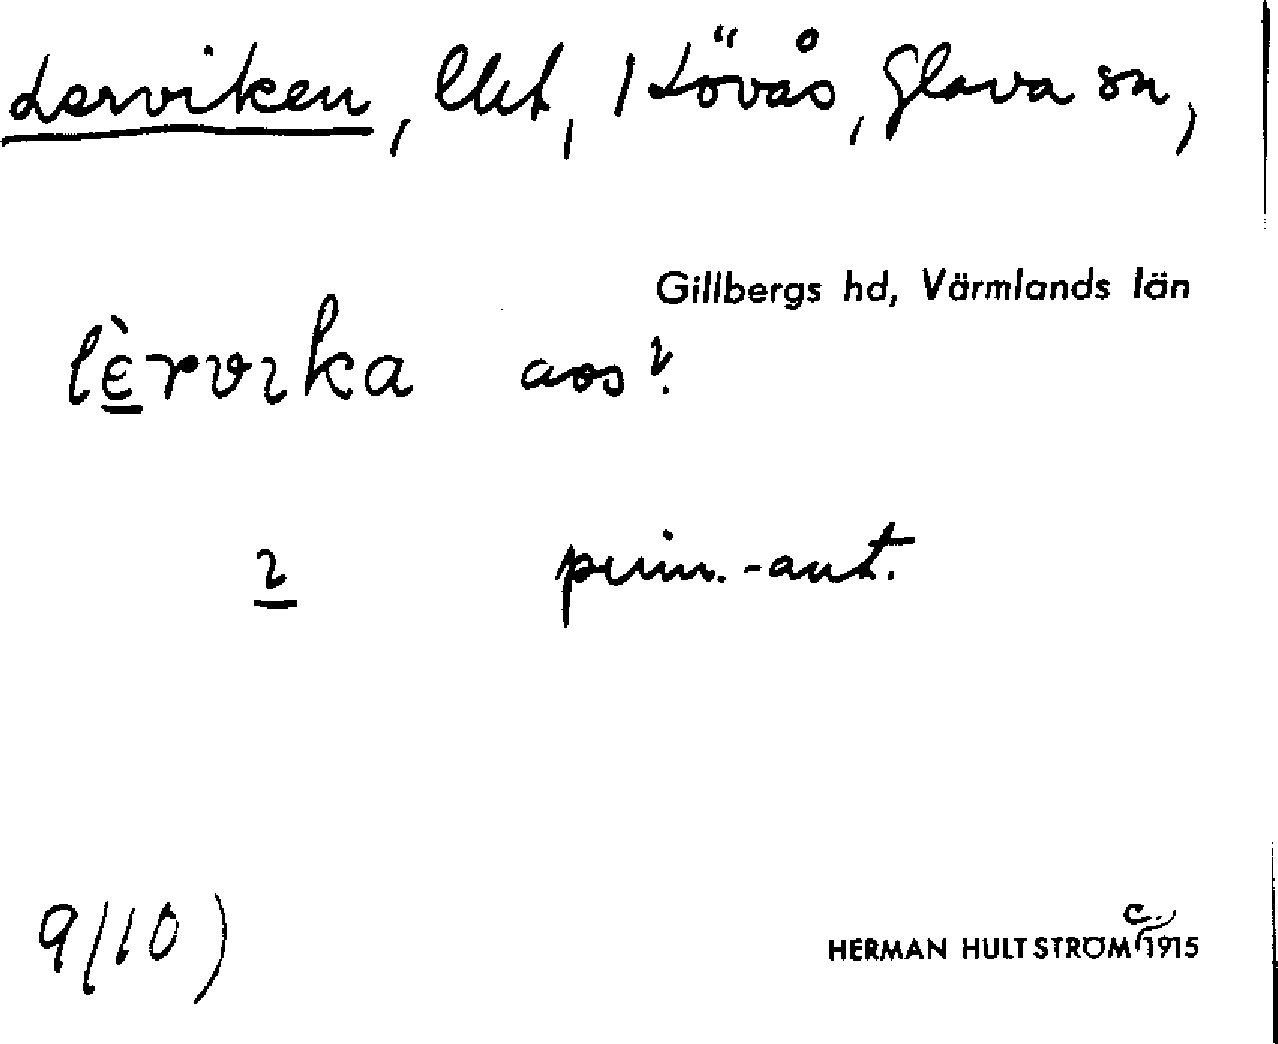 Lerviken, lht, 1 Lövås, Glava sn,
Gillbergs hd, Värmlands län
lèrvıka aos?
ı prim.-ant.
9/10)
HERMAN HULTSTRÖM c. 1915